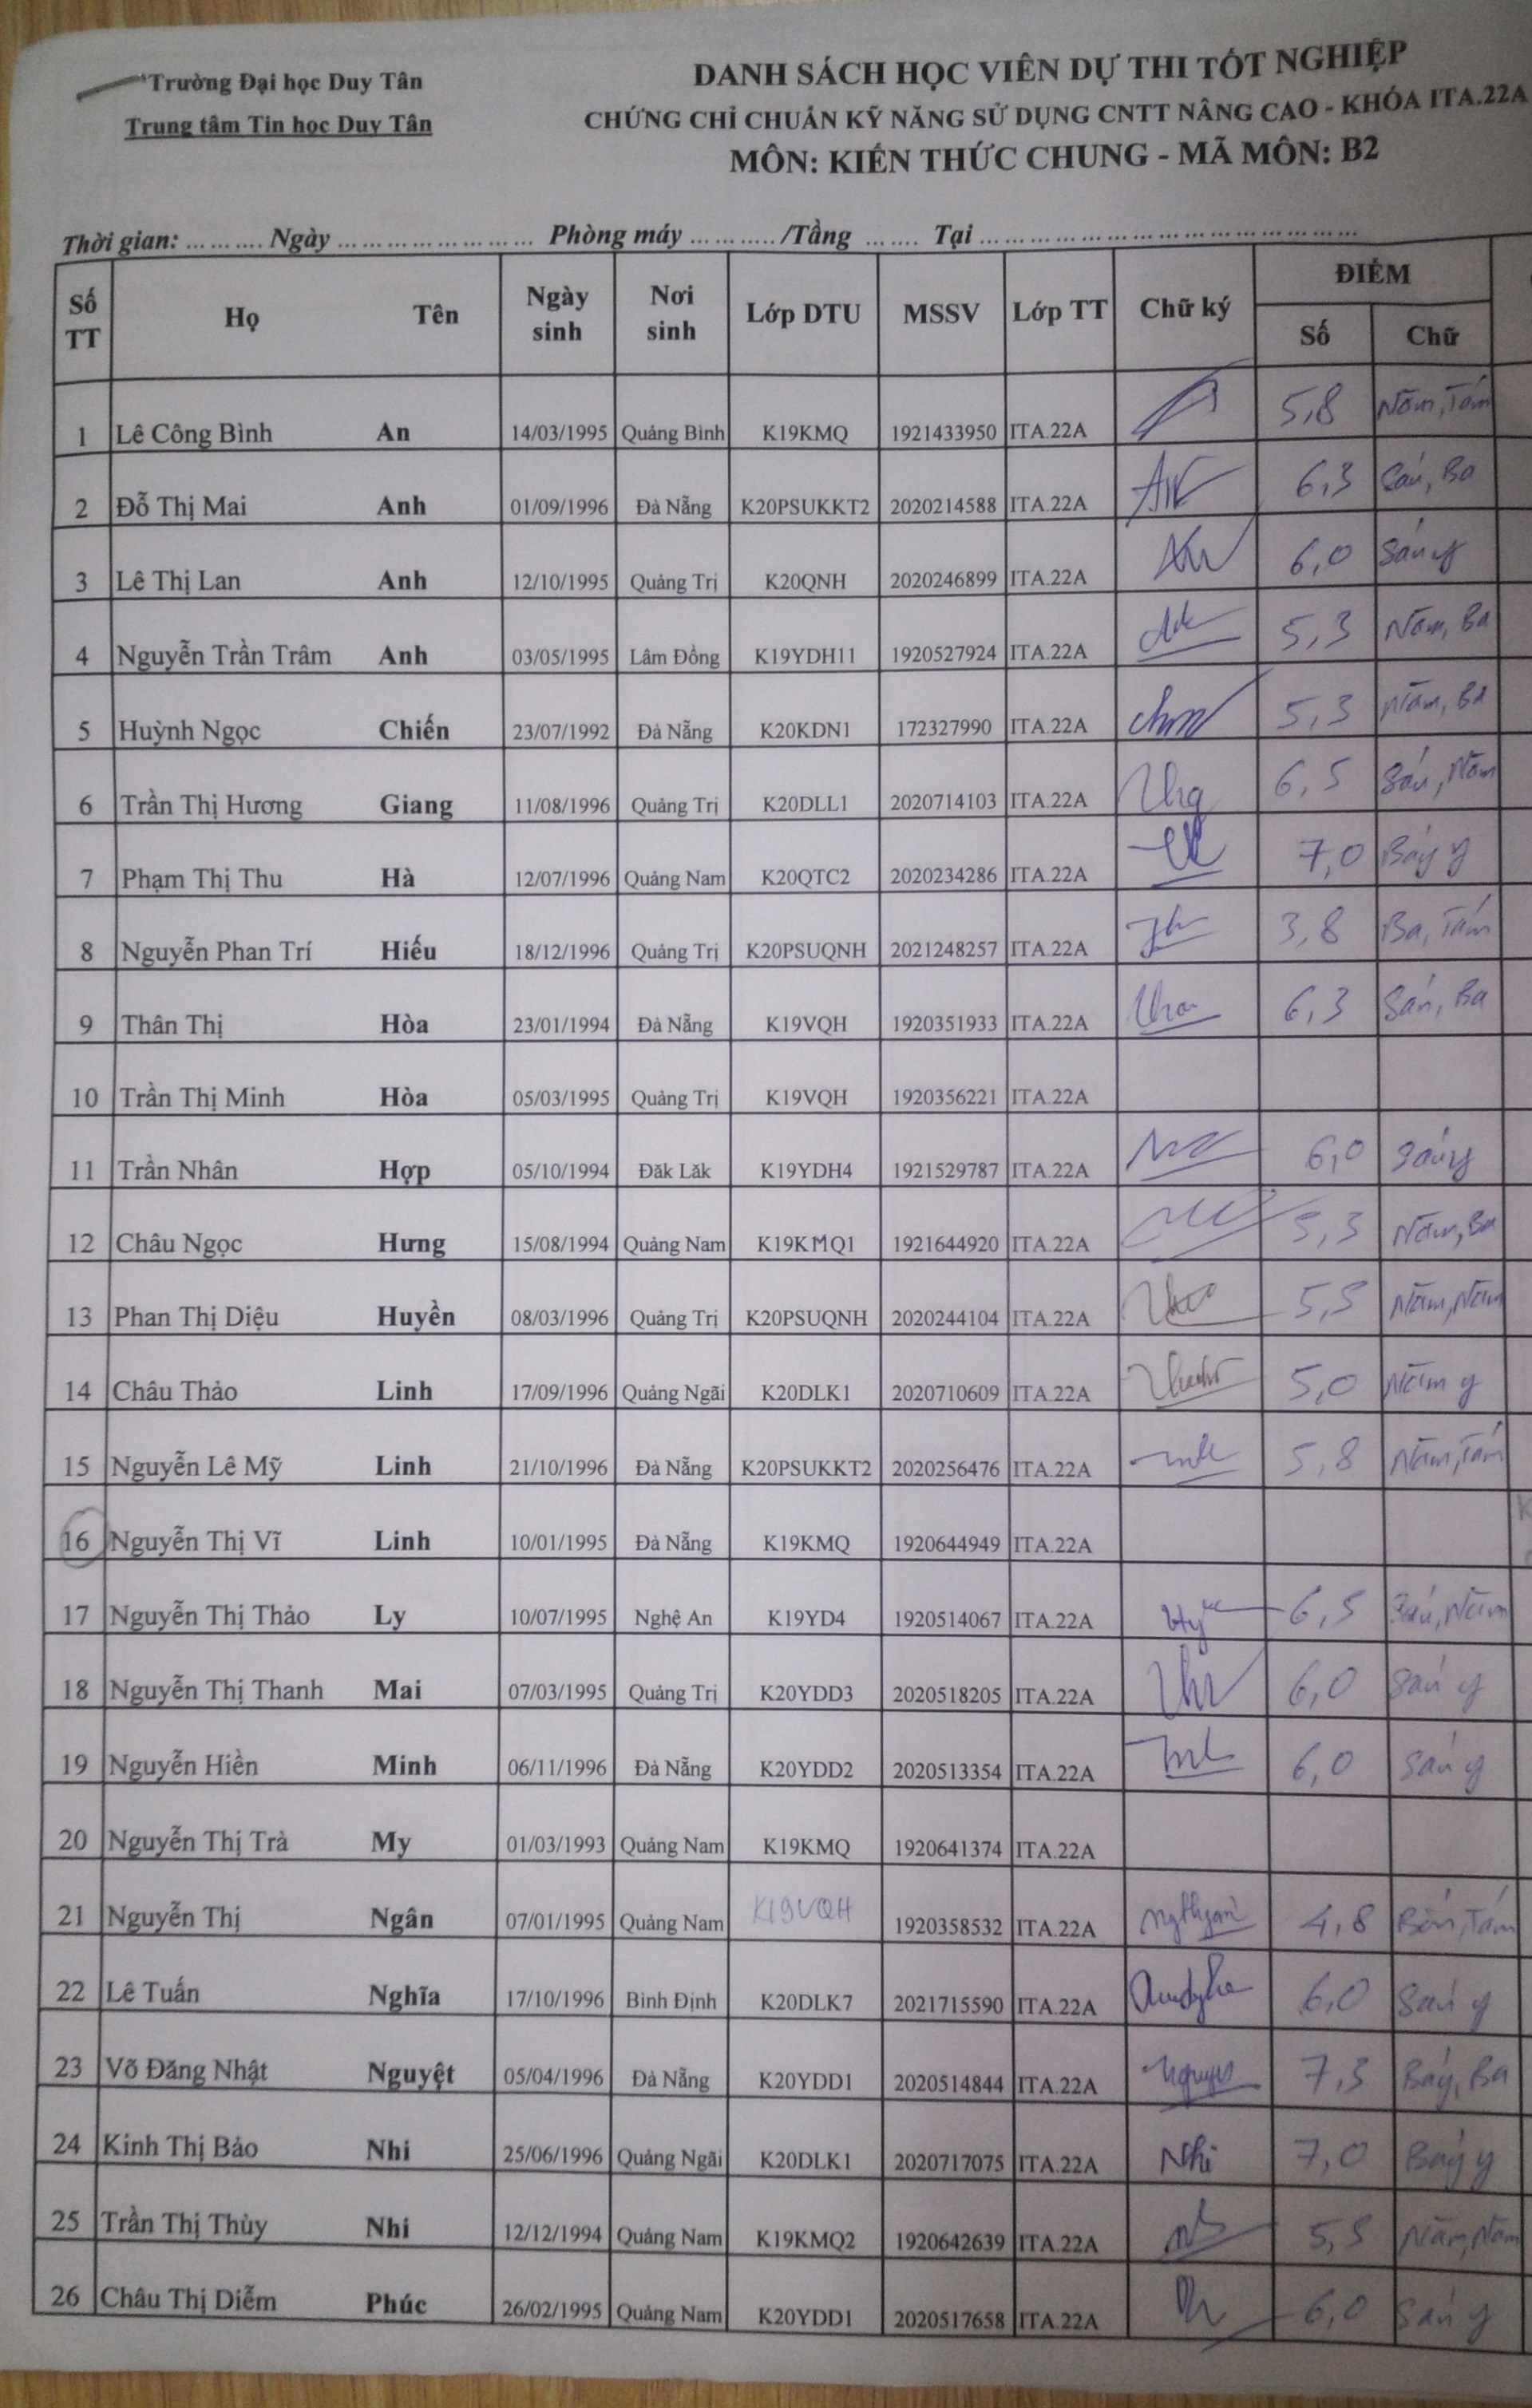 Trường Đại học Duy Tân
Trung tâm Tin học Duy Tân
DANH SÁCH HỌC VIÊN DỰ THI TỐT NGHIỆP
CHỨNG CHỈ CHUẨN KỸ NĂNG SỬ DỤNG CNTT NÂNG CAO - KHÓA ITA.22A
MÔN: KIẾN THỨC CHUNG - MÃ MÔN: B2
Thời gian: ... ... .... Ngày ... ... ... ... ... ... ... Phòng máy ... ... ..... /Tầng ... .... Tại ... ... ... ... ... ... ... ... ... ... ... ... ...
Số TT Họ Tên Ngày sinh Nơi sinh Lớp DTU MSSV Lớp TT Chữ ký ĐIỂM
Số Chữ
1 Lê Công Bình An 14/03/1995 Quảng Bình K19KMQ 1921433950 ITA.22A 5,8 Năm, Tám
2 Đỗ Thị Mai Anh 01/09/1996 Đà Nẵng K20PSUKKT2 2020214588 ITA.22A 6,3 Sáu, Ba
3 Lê Thị Lan Anh 12/10/1995 Quảng Trị K20QNH 2020246899 ITA.22A 6,0 Sáu y
4 Nguyễn Trần Trâm Anh 03/05/1995 Lâm Đồng K19YDH11 1920527924 ITA.22A 5,3 Năm, Ba
5 Huỳnh Ngọc Chiến 23/07/1992 Đà Nẵng K20KDN1 172327990 ITA.22A 5,3 Năm, Ba
6 Trần Thị Hương Giang 11/08/1996 Quảng Trị K20DLL1 2020714103 ITA.22A 6,5 Sáu, Năm
7 Phạm Thị Thu Hà 12/07/1996 Quảng Nam K20QTC2 2020234286 ITA.22A 7,0 Bảy y
8 Nguyễn Phan Trí Hiếu 18/12/1996 Quảng Trị K20PSUQNH 2021248257 ITA.22A 3,8 Ba, Tám
9 Thân Thị Hòa 23/01/1994 Đà Nẵng K19VQH 1920351933 ITA.22A 6,3 Sáu, Ba
10 Trần Thị Minh Hòa 05/03/1995 Quảng Trị K19VQH 1920356221 ITA.22A
11 Trần Nhân Hợp 05/10/1994 Đăk Lăk K19YDH4 1921529787 ITA.22A 6,0 Sáu y
12 Châu Ngọc Hưng 15/08/1994 Quảng Nam K19KMQ1 1921644920 ITA.22A 5,3 Năm, Ba
13 Phan Thị Diệu Huyền 08/03/1996 Quảng Trị K20PSUQNH 2020244104 ITA.22A 5,5 Năm, Năm
14 Châu Thảo Linh 17/09/1996 Quảng Ngãi K20DLK1 2020710609 ITA.22A 5,0 Năm y
15 Nguyễn Lê Mỹ Linh 21/10/1996 Đà Nẵng K20PSUKKT2 2020256476 ITA.22A 5,8 Năm, Tám
16 Nguyễn Thị Vĩ Linh 10/01/1995 Đà Nẵng K19KMQ 1920644949 ITA.22A
17 Nguyễn Thị Thảo Ly 10/07/1995 Nghệ An K19YD4 1920514067 ITA.22A 6,5 Sáu, Năm
18 Nguyễn Thị Thanh Mai 07/03/1995 Quảng Trị K20YDD3 2020518205 ITA.22A 6,0 Sáu y
19 Nguyễn Hiền Minh 06/11/1996 Đà Nẵng K20YDD2 2020513354 ITA.22A 6,0 Sáu y
20 Nguyễn Thị Trà My 01/03/1993 Quảng Nam K19KMQ 1920641374 ITA.22A
21 Nguyễn Thị Ngân 07/01/1995 Quảng Nam K19VQH 1920358532 ITA.22A 4,8 Bốn, Tám
22 Lê Tuấn Nghĩa 17/10/1996 Bình Định K20DLK7 2021715590 ITA.22A 6,0 Sáu y
23 Võ Đăng Nhật Nguyệt 05/04/1996 Đà Nẵng K20YDD1 2020514844 ITA.22A 7,3 Bảy, Ba
24 Kinh Thị Bảo Nhi 25/06/1996 Quảng Ngãi K20DLK1 2020717075 ITA.22A Nhi 7,0 Bảy y
25 Trần Thị Thùy Nhi 12/12/1994 Quảng Nam K19KMQ2 1920642639 ITA.22A 5,5 Năm, Năm
26 Châu Thị Diễm Phúc 26/02/1995 Quảng Nam K20YDD1 2020517658 ITA.22A 6,0 Sáu y